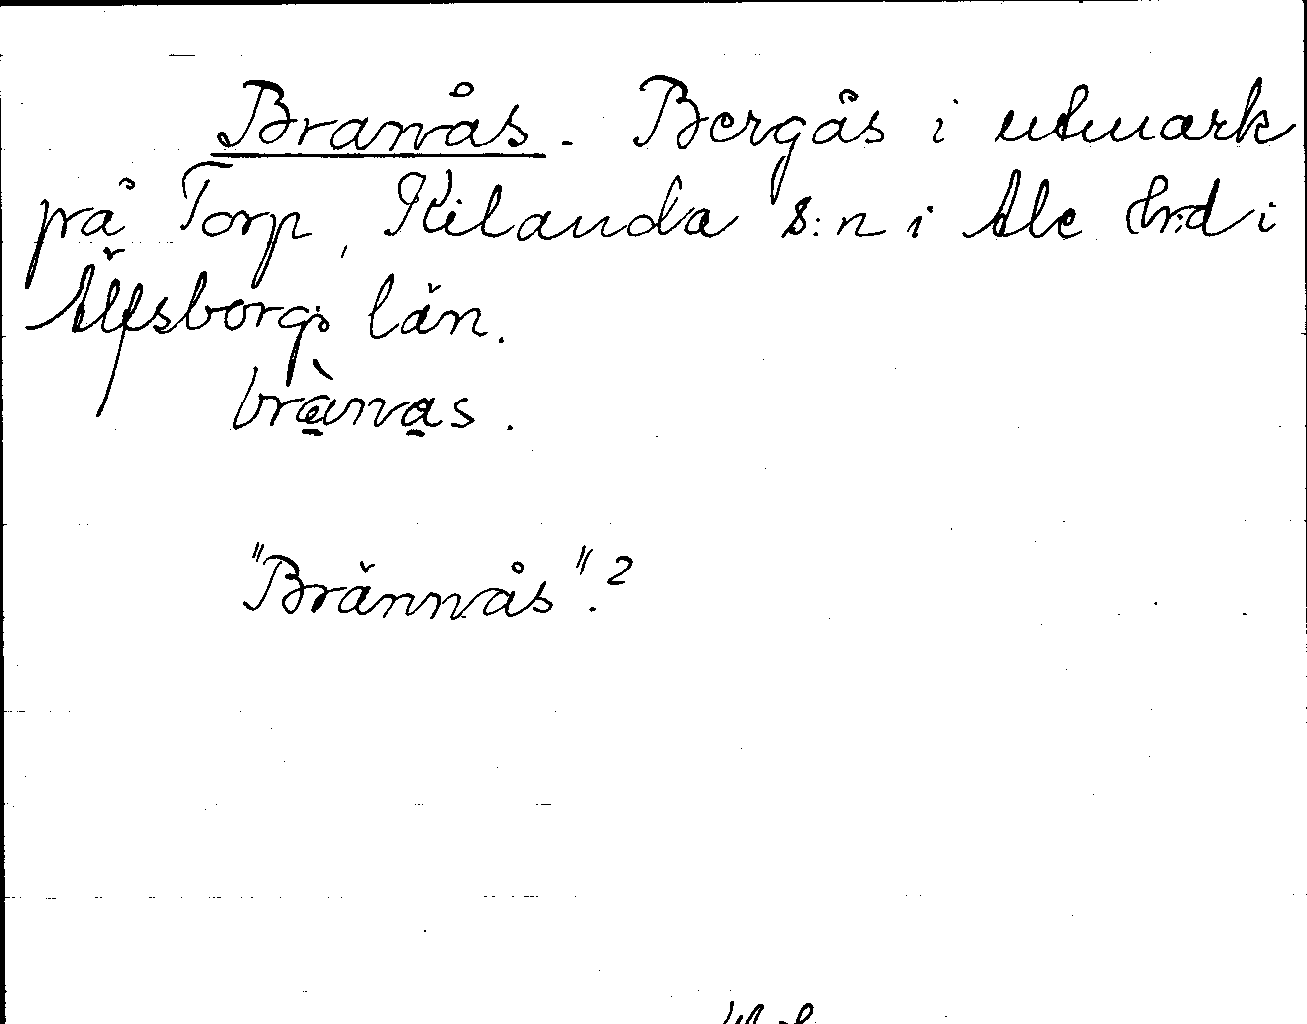 Branås. Bergås i utmark
på Torp, Kilanda s:n i Ale hrd i
Älfsborgs län.
brànas.
"Brännås".?